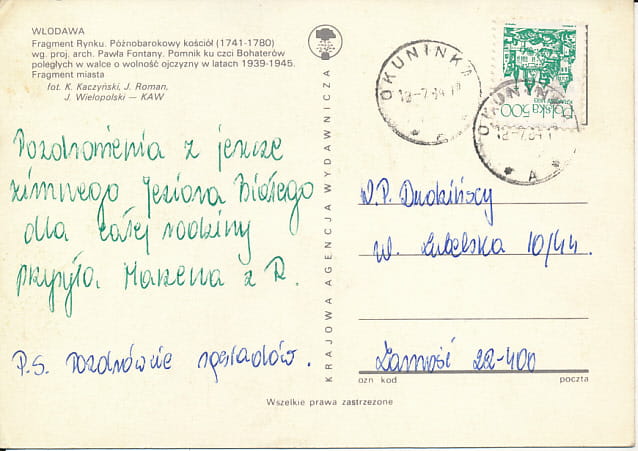 WŁODAWA
Fragment Rynku. Późnobarokowy kościół (1741-1780)
wg. proj. arch. Pawła Fontany. Pomnik ku czci Bohaterów
poległych w walce o wolność ojczyzny w latach 1939-1945.
Fragment miasta
fot. K. Kaczyński, J. Roman,
J. Wielopolski — KAW
Pozdrowienia z jeszcze
zimnego Jeziora Białego
dla całej rodziny
przysyła Marzena z R.
P.S. Pozdrówcie sąsiadów.
KRAJOWA AGENCJA WYDAWNICZA
OKUNINKA
Polska 500
OKUNINKA
A
W.P. Dudzińscy
ul. Lubelska 10/44
Zamość 22-400
ozn kod
poczta
Wszelkie prawa zastrzeżone